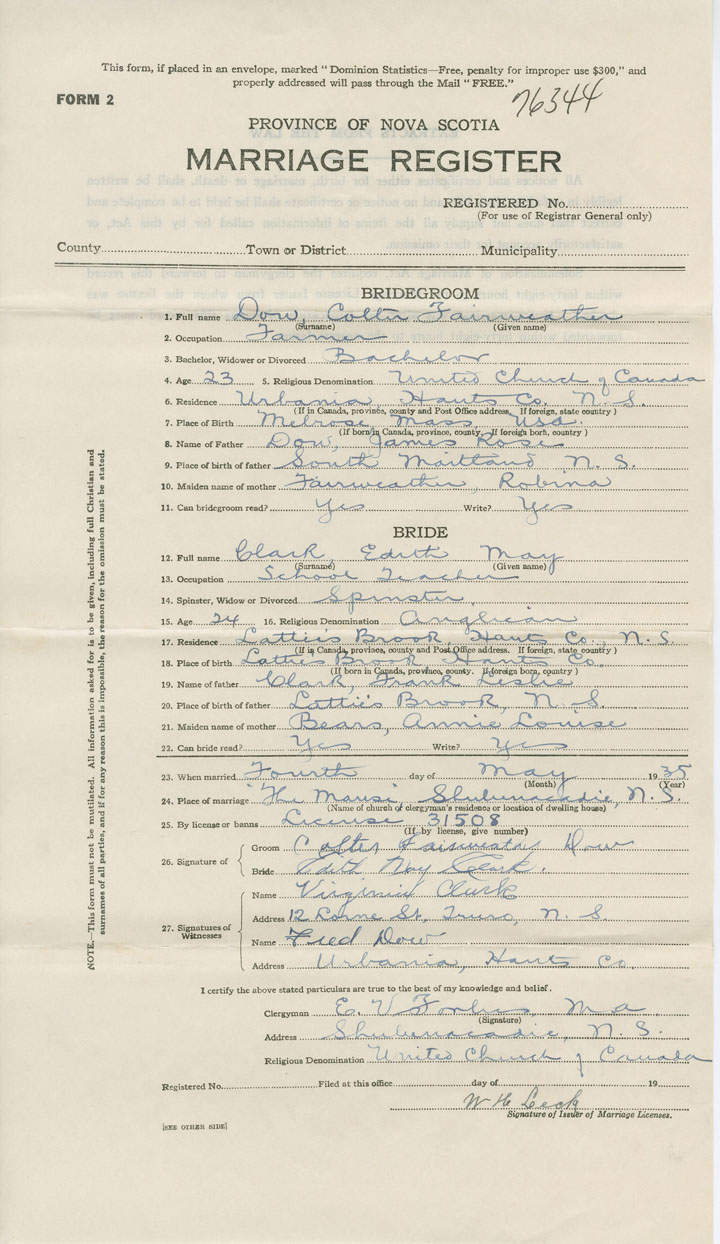 This form, if placed in an envelope, marked "Dominion Statistics—Free, penalty for improper use $300," and
properly addressed will pass through the Mail "FREE."
FORM 2
76344
PROVINCE OF NOVA SCOTIA
MARRIAGE REGISTER
REGISTERED No.
(For use of Registrar General only)
County Town or District Municipality
BRIDEGROOM
1. Full name Dow, Colter Fairweather
(Surname) (Given name)
2. Occupation Farmer
3. Bachelor, Widower or Divorced Bachelor
4. Age 23 5. Religious Denomination United Church of Canada
6. Residence Urbania, Hants Co. N. S.
(If in Canada, province, county and Post Office address, If foreign, state country)
7. Place of Birth Melrose Mass. Usa.
(If born in Canada, province, county, If foreign born, country)
8. Name of Father Dow, James Rose
9. Place of birth of father South Maitland N. S.
10. Maiden name of mother Fairweather, Robina
11. Can bridegroom read? Yes Write? Yes
BRIDE
12. Full name Clark, Edith May
(Surname) (Given name)
13. Occupation School Teacher
14. Spinster, Widow or Divorced Spinster
15. Age 24 16. Religious Denomination Anglican
17. Residence Lattie's Brook, Hants Co., N. S.
(If in Canada, province, county and Post Office address. If foreign, state country)
18. Place of birth Lattie's Brook Hants Co.
(If born in Canada, province, county. If foreign born, country)
19. Name of father Clark, Frank Leslie
20. Place of birth of father Lattie's Brook, N. S.
21. Maiden name of mother Bears, Annie Louise
22. Can bride read? Yes Write? Yes
23. When married Fourth day of May 1935
(Month) (Year)
24. Place of marriage "The Manse" Shubenacadie, N. S.
(Name of church or clergyman's residence or location of dwelling house)
25. By license or banns License 31508
(If by license, give number)
26. Signature of
Groom Colter Fairweather Dow
Bride Edith May Clark.
27. Signatures of Witnesses
Name Virginia Clark
Address 12 Lorne St, Truro, N. S.
Name Fred Dow
Address Urbania, Hants Co.
I certify the above stated particulars are true to the best of my knowledge and belief.
Clergyman E. V. Forbes M A
(Signature)
Address Shubenacadie, N. S.
Religious Denomination United Church of Canada
Registered No. Filed at this office day of 19
W H Leck
Signature of Issuer of Marriage Licenses.
[SEE OTHER SIDE]
NOTE.—This form must not be mutilated. All information asked for is to be given, including full Christian and
surnames of all parties, and if for any reason this is impossible, the reason for the omission must be stated.